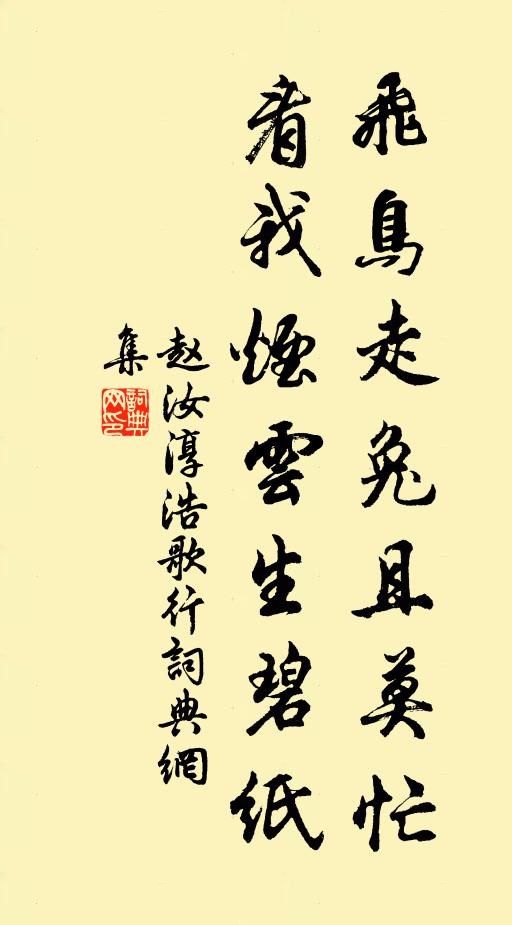 飛鳥走兔且莫忙
看我煙雲生碧紙
赵汝淳浩歌行詞典網
集
詞典
网印